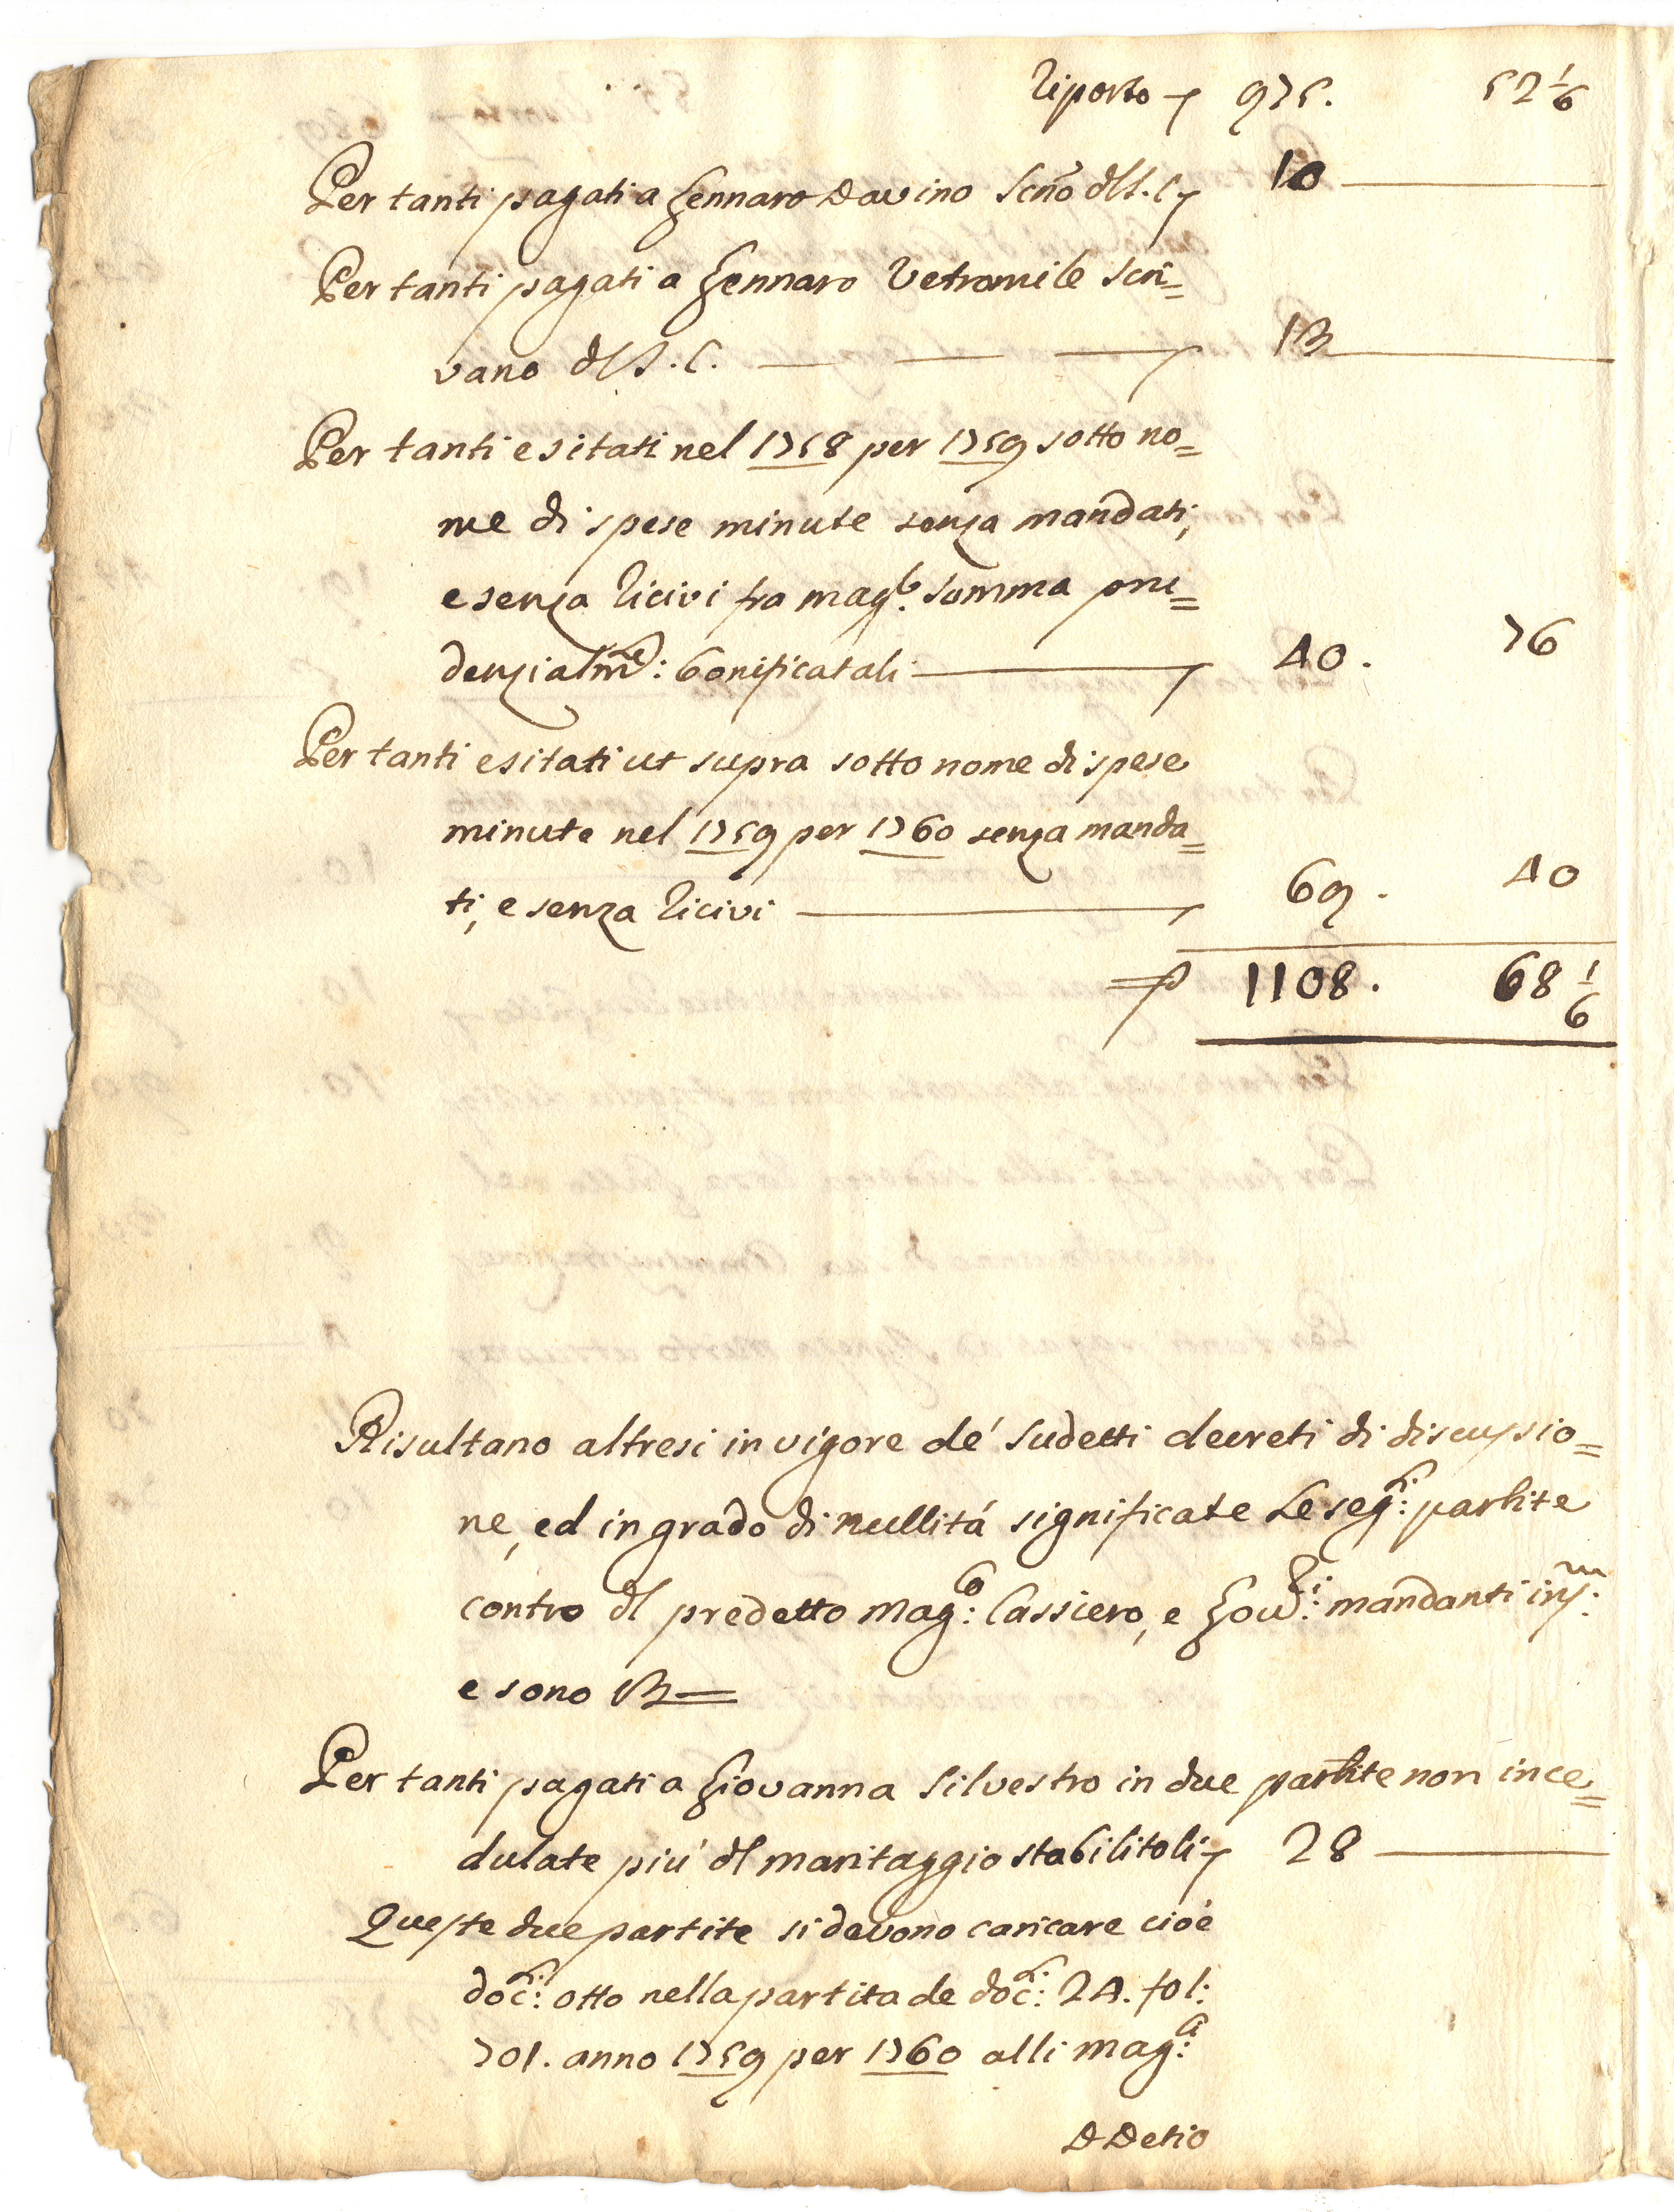 Riporto 975. 52 1/6
Per tanti pagati a Gennaro Davino Scno dl S.C. 10
Per tanti pagati a Gennaro Vetromile Scri=
vano dl S.C. 13
Per tanti esitati nel 1758 per 1759 sotto no=
me di spese minute senza mandati,
e senza ricivi fra magr. somma pru=
denzialmte: bonificatali 40. 76
Per tanti esitati ut supra sotto nome di spese
minute nel 1759 per 1760 senza manda=
ti, e senza ricivi 69. 40
1108. 68 1/6
Risultano altresi in vigore de' sudetti decreti di discussio=
ne, ed in grado di nullitá significate le segti: partite
contro dl predetto Magco: Cassiero, e Govri: mandanti inm:
e sono
Per tanti pagati a Giovanna Silvestro in due partite non ince=
dulate piú dl maritaggio stabilitoli 28
Queste due partite si devono caricare cioé
docti: otto nella partita de docti: 24. fol:
701. anno 1759 per 1760 alli Magci:
D Detio